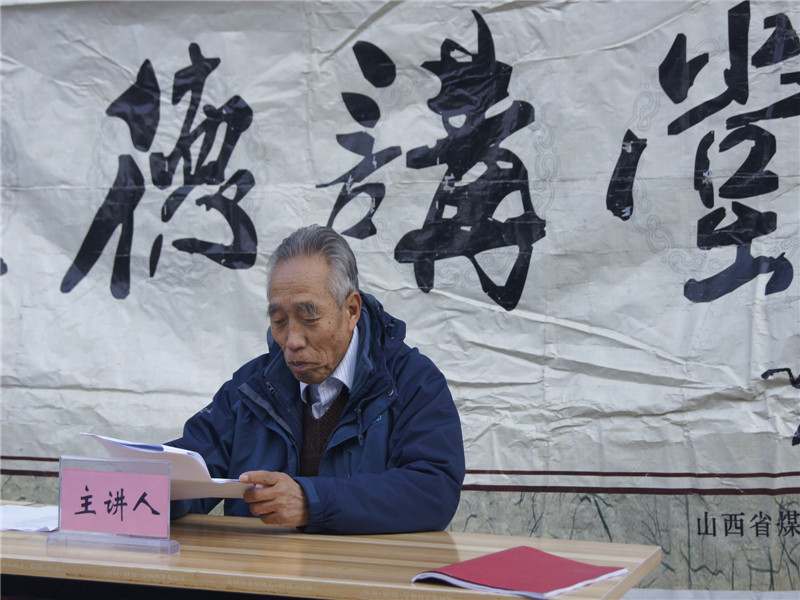 德講堂
主讲人
山西省煤